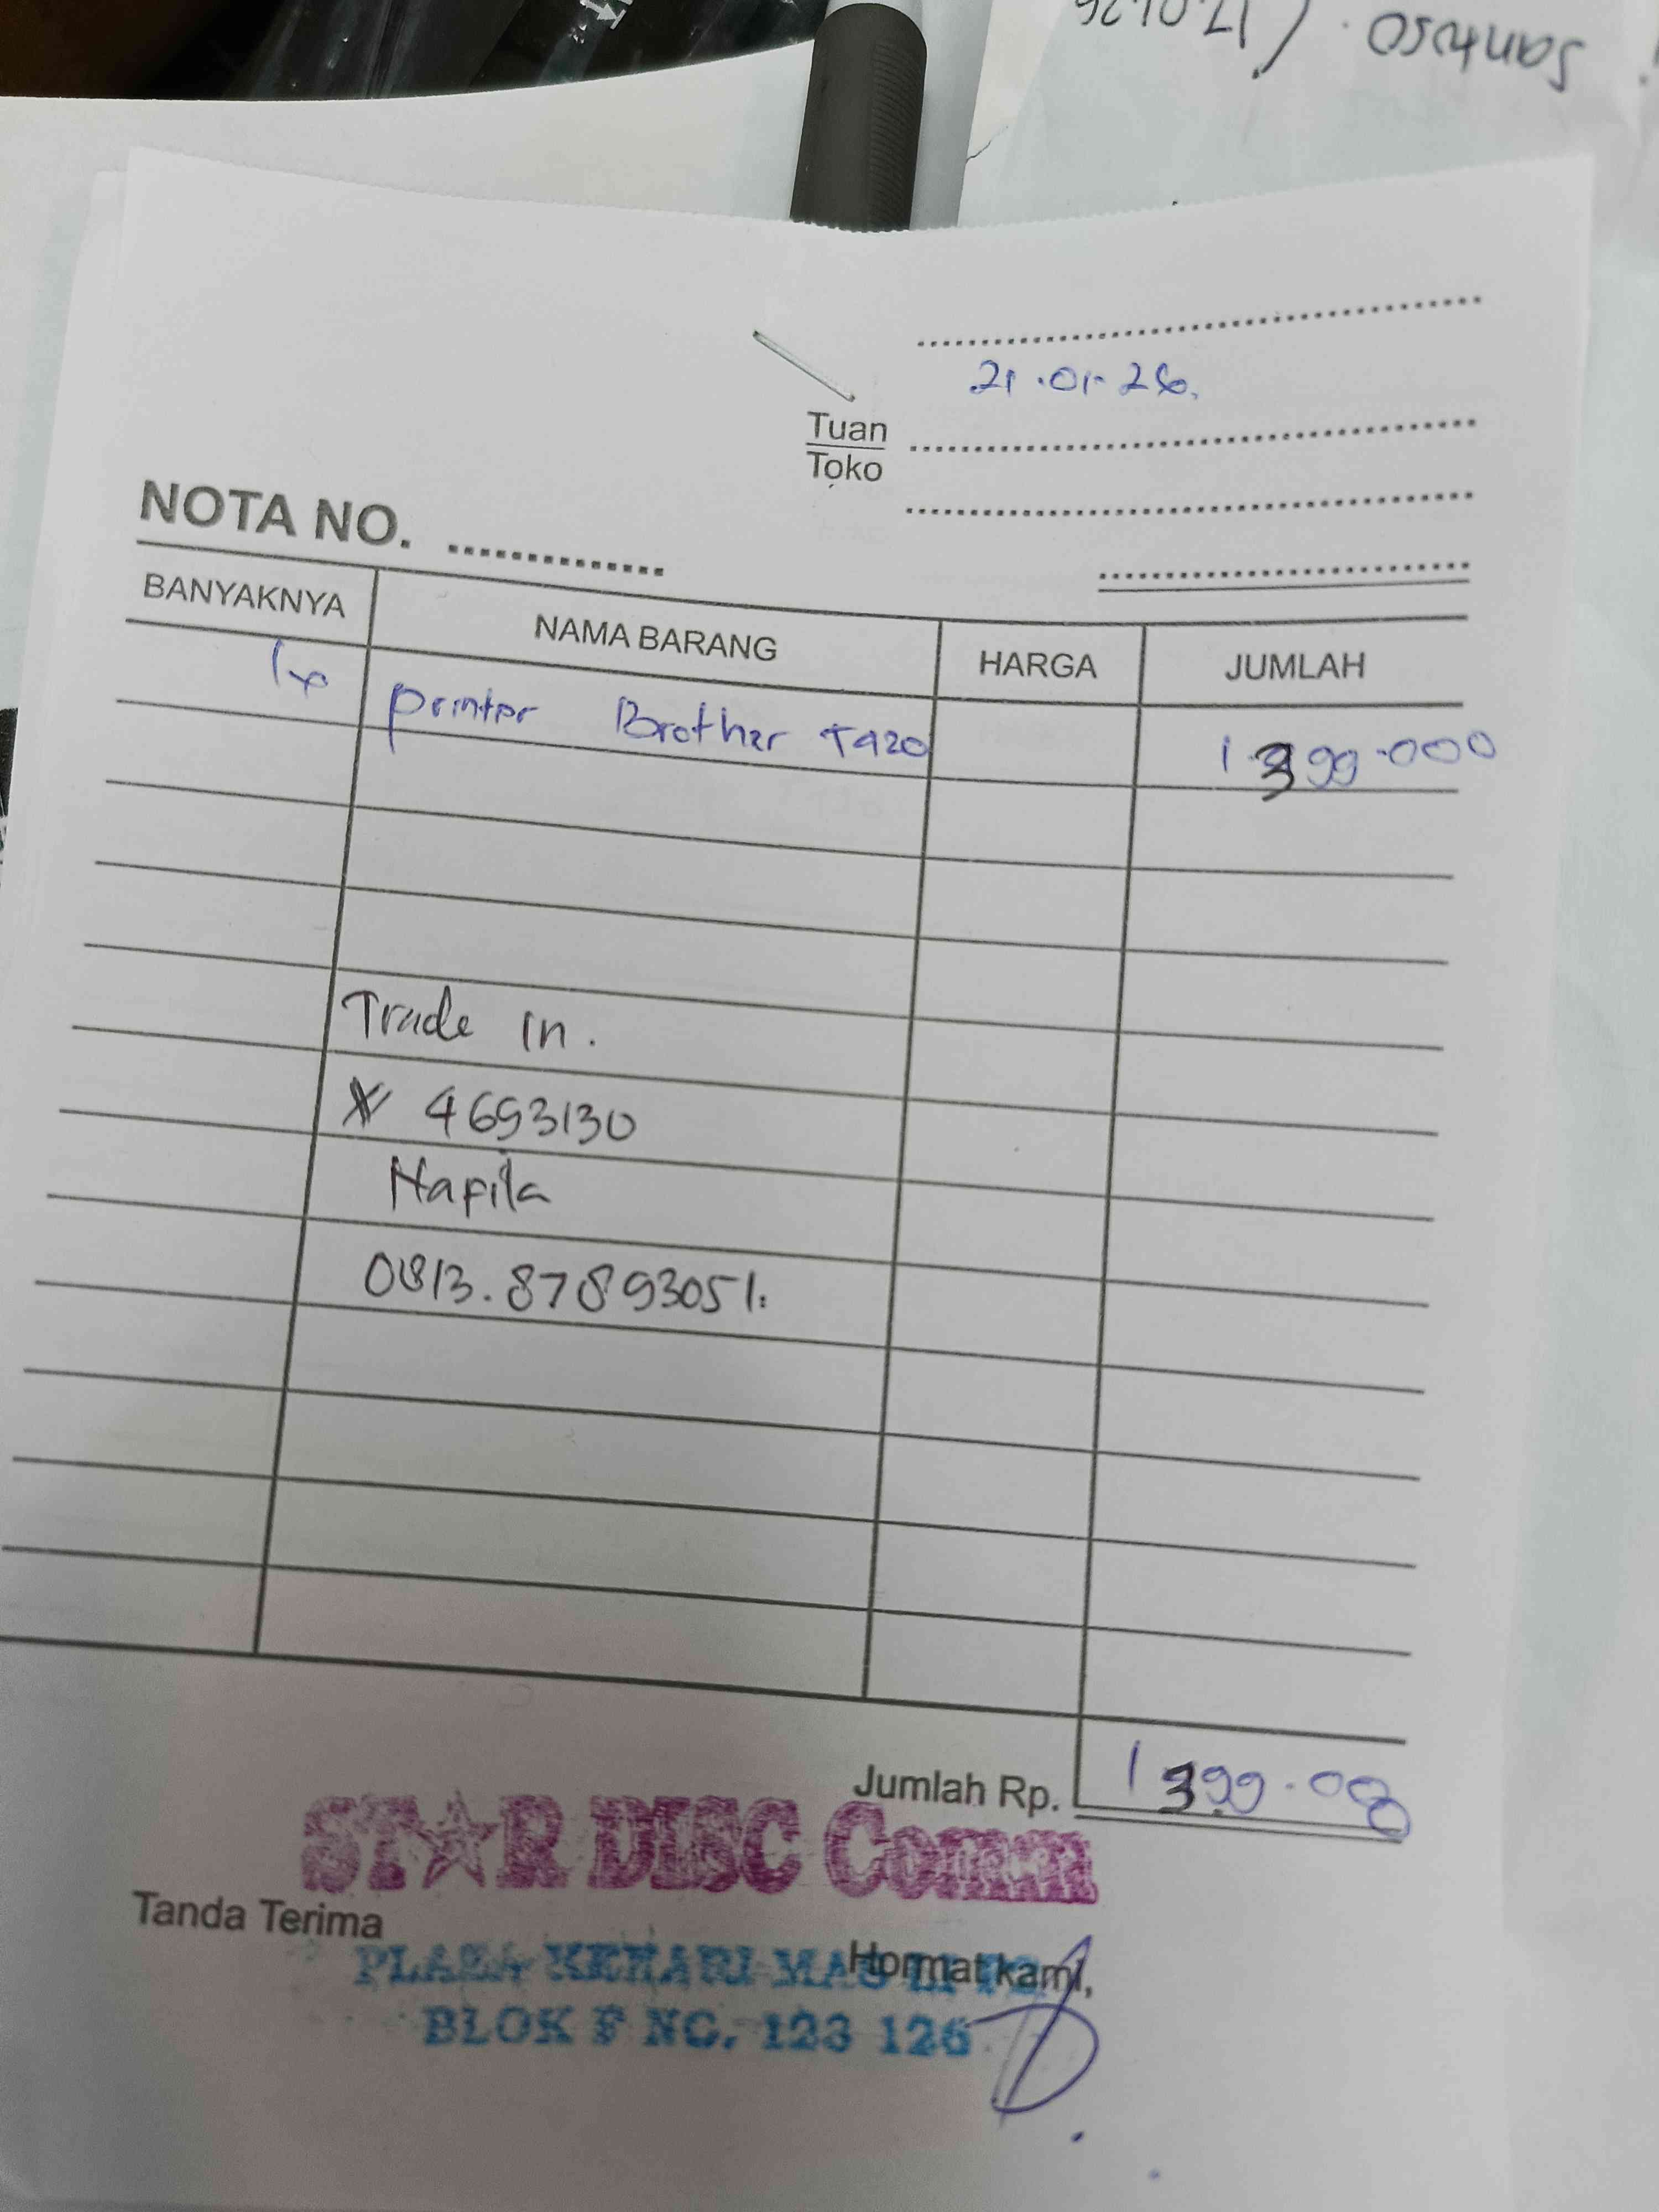 Santoso. / 17.01.26
21.01.26.
Tuan
Toko
NOTA NO.
BANYAKNYA NAMA BARANG HARGA JUMLAH
Printer Brother T920 1.399.000
Trade in.
4693130
Hapila
0813.87893051.
Jumlah Rp. 1399.000
ST★R DISC Comm
Tanda Terima
Hormat kami,
PLAZA KENARI MAS
BLOK F NO. 123 126